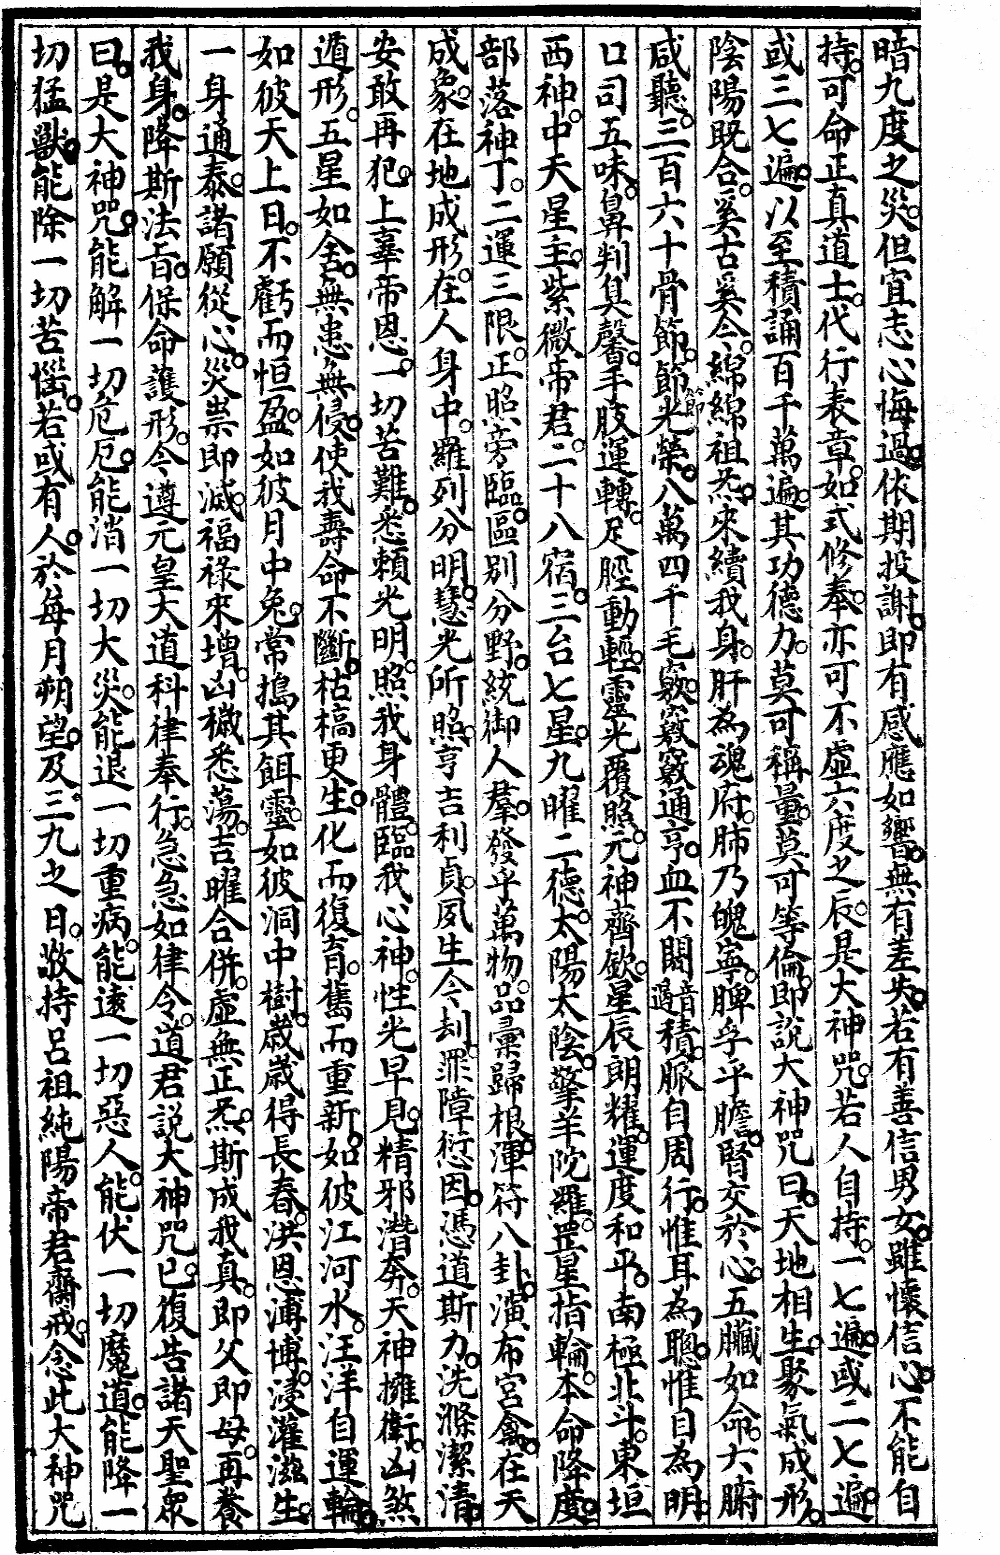 暗九度之災。但宜志心悔過。依期投謝。即有感應如響。無有差失。若有善信男女。雖懷信心。不能自
持。可命正真道士。代行表章。如式修奉。亦可不虛六度之辰。是大神咒。若人自持。一七遍。或二七遍。
或三七遍。以至積誦百千萬遍。其功德力。莫可稱量。莫可等倫。即說大神咒曰。天地相生。聚氣成形。
陰陽既合。奚古奚今。綿綿祖炁。來續我身。肝為魂府。肺乃魄寧。脾孚乎膽。腎交於心。五臟如命。六腑
咸聽。三百六十骨節。節節光榮。八萬四千毛竅。竅竅通亨。血不閼音過積。脈自周行。惟耳為聰。惟目為明。
口司五味。鼻判臭馨。手肢運轉。足脛動輕。靈光覆照。元神齊歛。星辰朗耀。運度和平。南極北斗。東垣
西神。中天星主。紫微帝君。二十八宿。三台七星。九曜二德。太陽太陰。擎羊陀羅。罡星指輪。本命降度。
部落神丁。二運三限。正照旁臨。區別分野。統御人羣。發乎萬物。品彙歸根。渾符八卦。演布宮禽。在天
成象。在地成形。在人身中。羅列分明。慧光所照。亨吉利貞。夙生今刦。罪障愆因。憑道斯力。洗滌潔清。
安敢再犯。上辜帝恩。一切苦難。悉賴光明。照我身體。臨我心神。性光早見。精邪潛奔。天神擁衛。凶煞
遁形。五星如舍。無患無侵。使我壽命不斷。枯槁更生。化而復育。舊而重新。如彼江河水。汪洋自運輪。
如彼天上日。不虧而恒盈。如彼月中兔。常搗其餌靈。如彼洞中樹。歲歲得長春。洪恩溥博。浸灌滋生。
一身通泰。諸願從心。災祟即滅。福祿來增。凶穢悉蕩。吉曜合併。虛無正炁。斯成我真。即父即母。再養
我身。降斯法旨。保命護形。今遵元皇大道科律奉行。急急如律令。道君說大神咒已。復告諸天聖眾
曰。是大神咒。能解一切危厄。能消一切大災。能退一切重病。能遠一切惡人。能伏一切魔道。能降一
切猛獸。能除一切苦惱。若或有人。於每月朔望。及三九之日。敬持呂祖純陽帝君齋戒。念此大神咒